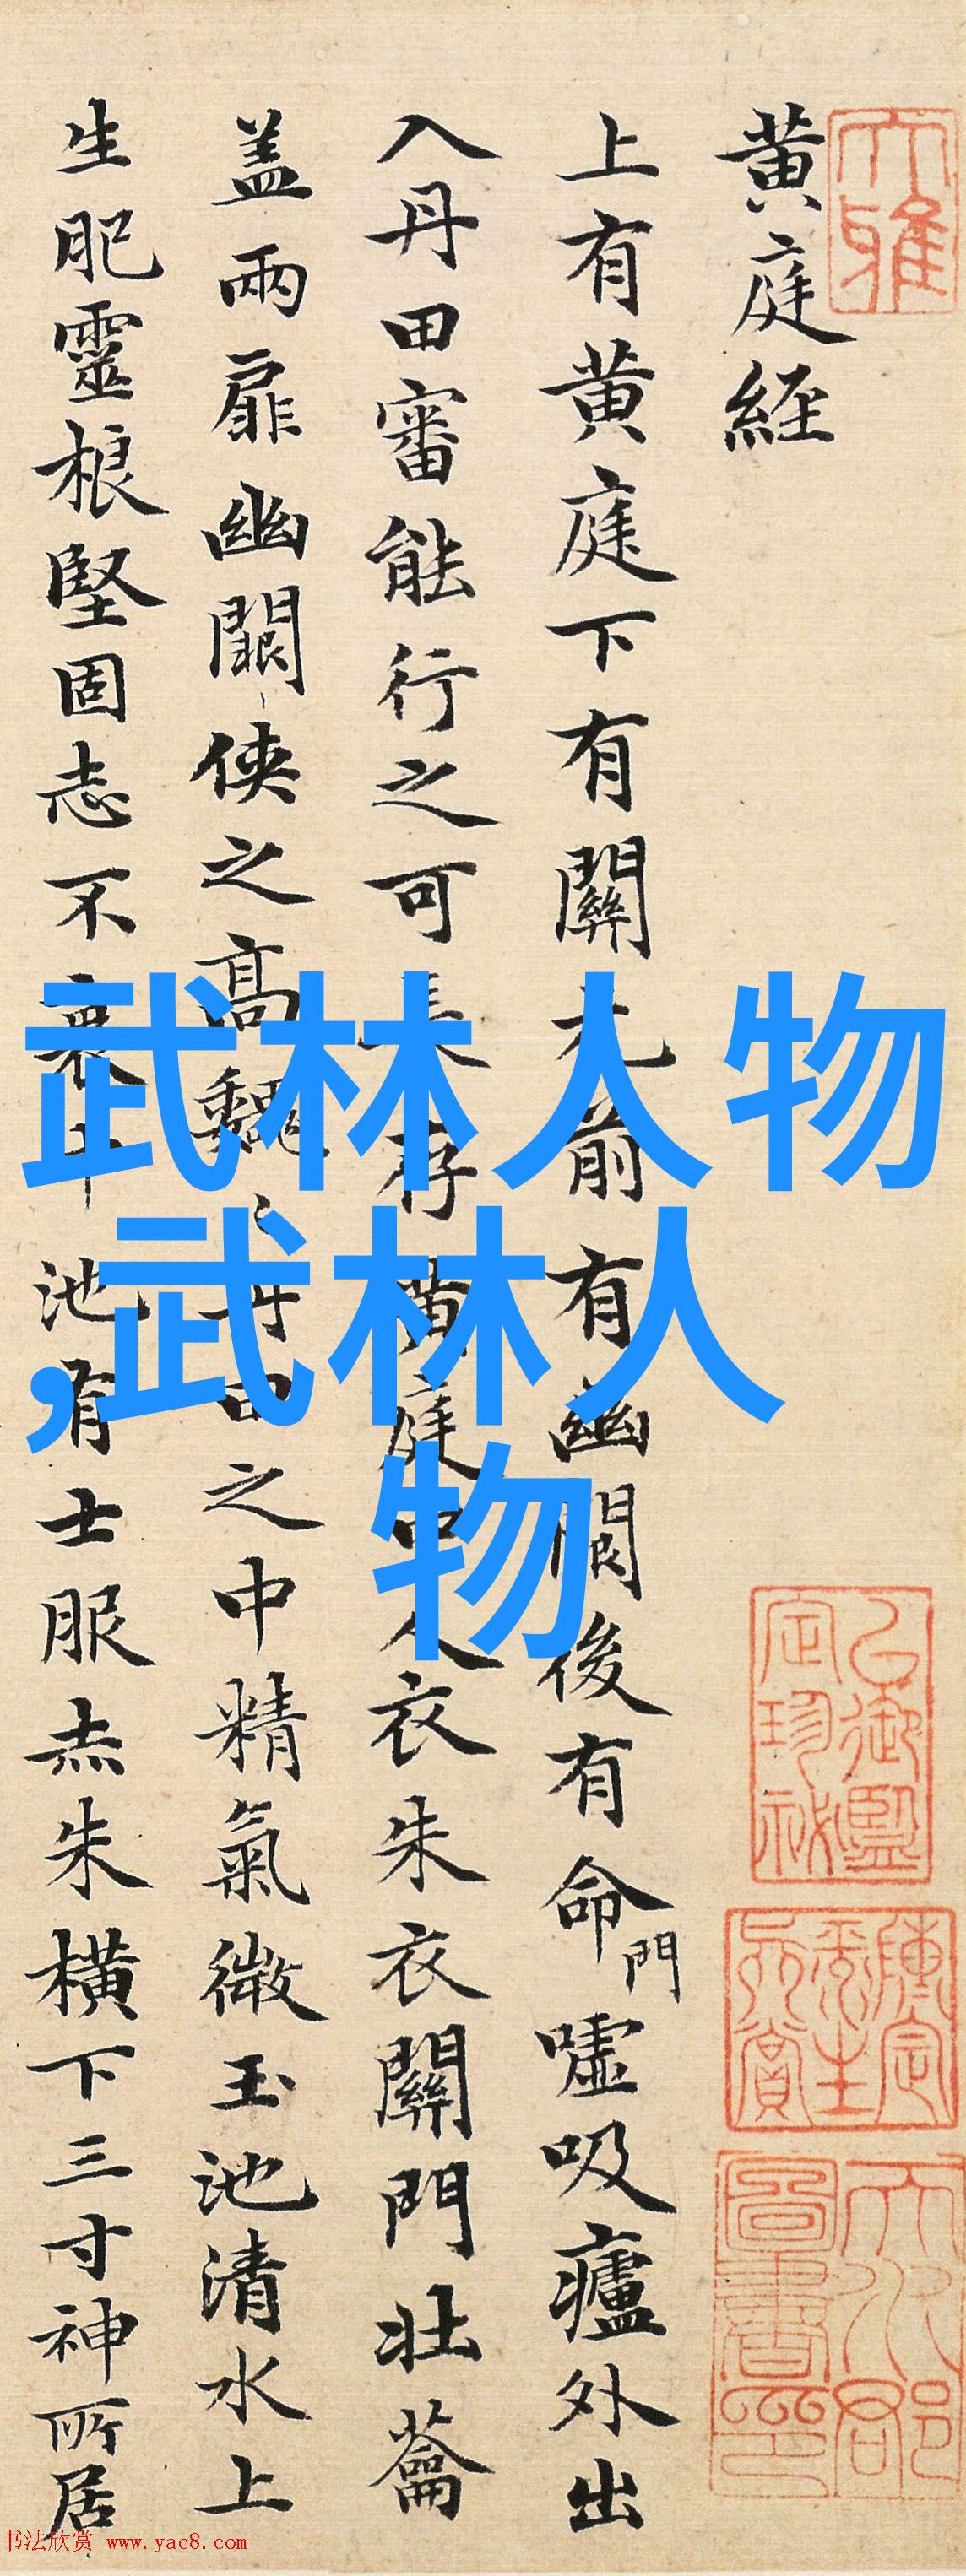 黄庭経
上有黄庭下有關元前有幽闕後有命門嘘吸廬外出
入丹田審能行之可長存黄庭中人衣朱衣關門壮蘥
盖兩扉幽闕侠之高魏丹田之中精氣微玉池清水上
生肥靈根堅固志不衰中池有士服赤朱横下三寸神所居
大雅
乙御監定珍祕
武林人物
,武林人
物
书法欣赏 www.yac8.com